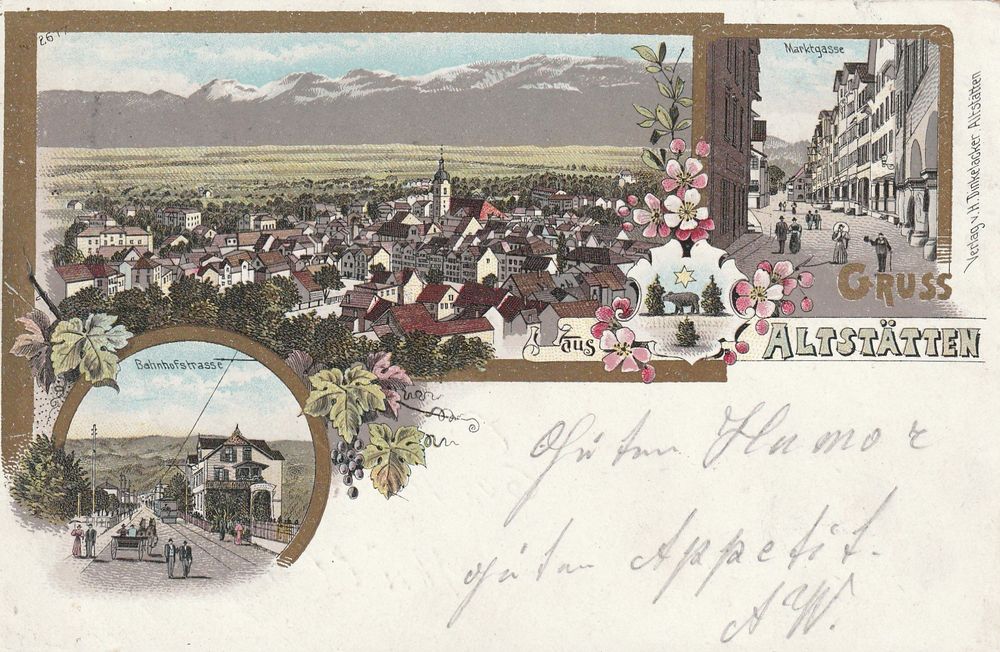 2617
Marktgasse
Verlag v. H. Dinkelacker Altstätten
Gruss
aus
ALTSTÄTTEN
Bahnhofstrasse
Guten Humor
guten Appetit.
AW.